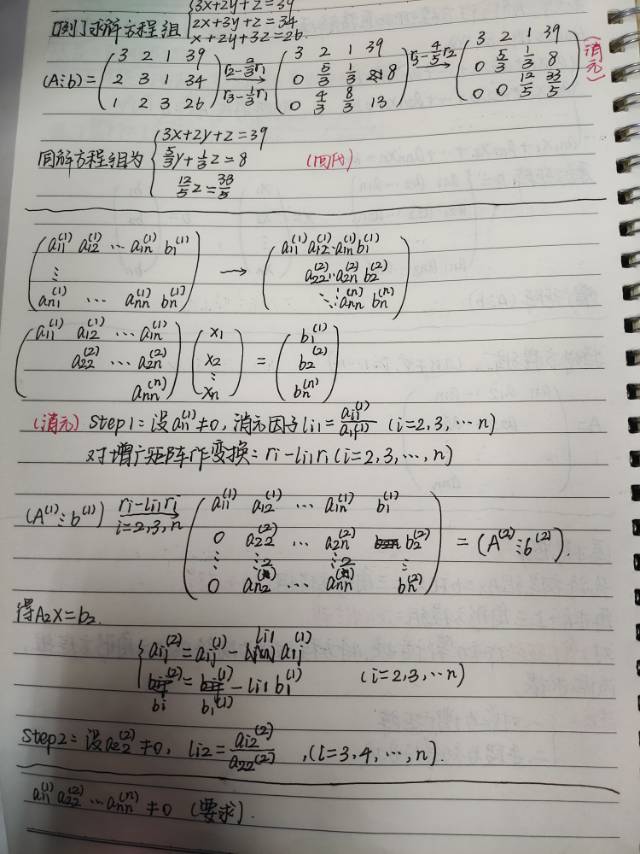 [例] 求解方程组 {3x+2y+z=39
2x+3y+z=34
x+2y+3z=26
(A⋮b) = (3 2 1 39; 2 3 1 34; 1 2 3 26) →[r2-2/3r1, r3-1/3r1] (3 2 1 39; 0 5/3 1/3 8; 0 4/3 8/3 13) →[r3-4/5r2] (3 2 1 39; 0 5/3 1/3 8; 0 0 12/5 33/5) (消元)
同解方程组为 {3x+2y+z=39
5/3y+1/3z=8 (回代)
12/5z=33/5
(a11^(1) a12^(1) ⋯ a1n^(1) b1^(1); ⋮; an1^(1) ⋯ ann^(1) bn^(1)) → (a11^(1) a12^(1) ⋯ a1n^(1) b1^(1); a22^(2) ⋯ a2n^(2) b2^(2); ⋱ ⋮ ann^(n) bn^(n))
(a11^(1) a12^(1) ⋯ a1n^(1); a22^(2) ⋯ a2n^(2); ann^(n)) (x1; x2; ⋮; xn) = (b1^(1); b2^(2); bn^(n))
(消元) Step1: 设a11^(1)≠0, 消元因子li1=ai1^(1)/a11^(1) (i=2,3,⋯n)
对增广矩阵作变换: ri-li1r1 (i=2,3,⋯,n)
(A^(1)⋮b^(1)) →[ri-li1r1, i=2,3,n] (a11^(1) a12^(1) ⋯ a1n^(1) b1^(1); 0 a22^(2) ⋯ a2n^(2) b2^(2); ⋮ ⋮ ⋮ ⋮; 0 an2^(2) ⋯ ann^(2) bn^(2)) = (A^(2)⋮b^(2)).
得A2X=b2.
{aij^(2)=aij^(1)-li1a1j^(1)
bi^(2)=bi^(1)-li1b1^(1) (i=2,3,⋯n)
Step2: 设a22^(2)≠0, li2=ai2^(2)/a22^(2), (i=3,4,⋯,n).
a11^(1)a22^(2)⋯ann^(n)≠0 (要求).